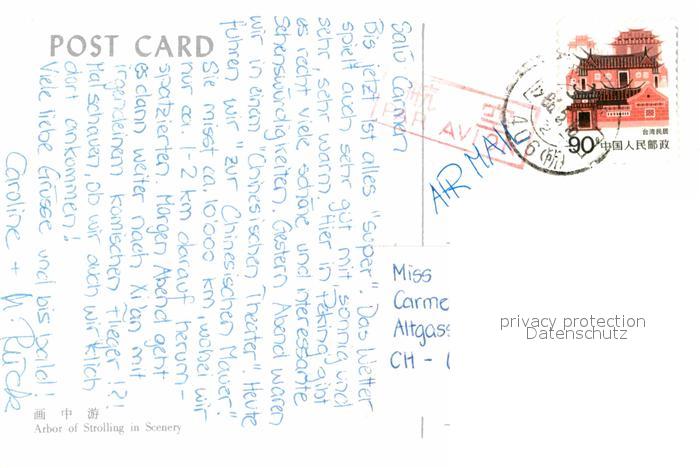 POST CARD
Salü Carmen
Bis jetzt ist alles "super". Das Wetter
spielt auch sehr gut mit, sonnig und
sehr, sehr warm. Hier in Peking gibt
es recht viele schöne und interessante
Sehenswürdigkeiten. Gestern Abend waren
wir in einem "Chinesischen Theater". Heute
führen wir "zur Chinesischen Mauer".
Sie misst ca. 10'000 km, wobei wir
nur ca 1-2 km darauf herum-
spatzierten. Morgen Abend geht
es dann weiter nach Xi'an mit
irgendeinem komischen Flieger!?!
Mal schauen, ob wir auch wirklich
dort ankommen!
Viele liebe Grüsse und bis bald!
Caroline +
画中游
Arbor of Strolling in Scenery
航空
PAR AVION
AIR MAIL
台湾民居
90分 中国人民邮政
Miss
Carme
Altgass
CH -
privacy protection
Datenschutz